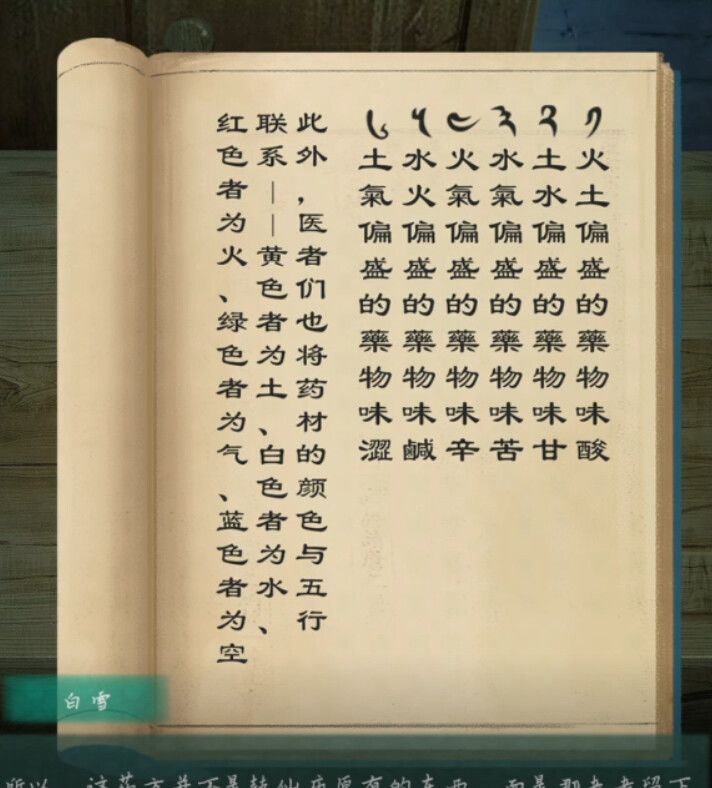 火土偏盛的藥物味酸
土水偏盛的藥物味甘
水氣偏盛的藥物味苦
火氣偏盛的藥物味辛
水火偏盛的藥物味鹹
土氣偏盛的藥物味澀
此外，医者们也将药材的颜色与五行
联系——黄色者为土、白色者为水、
红色者为火、绿色者为气、蓝色者为空
白雪